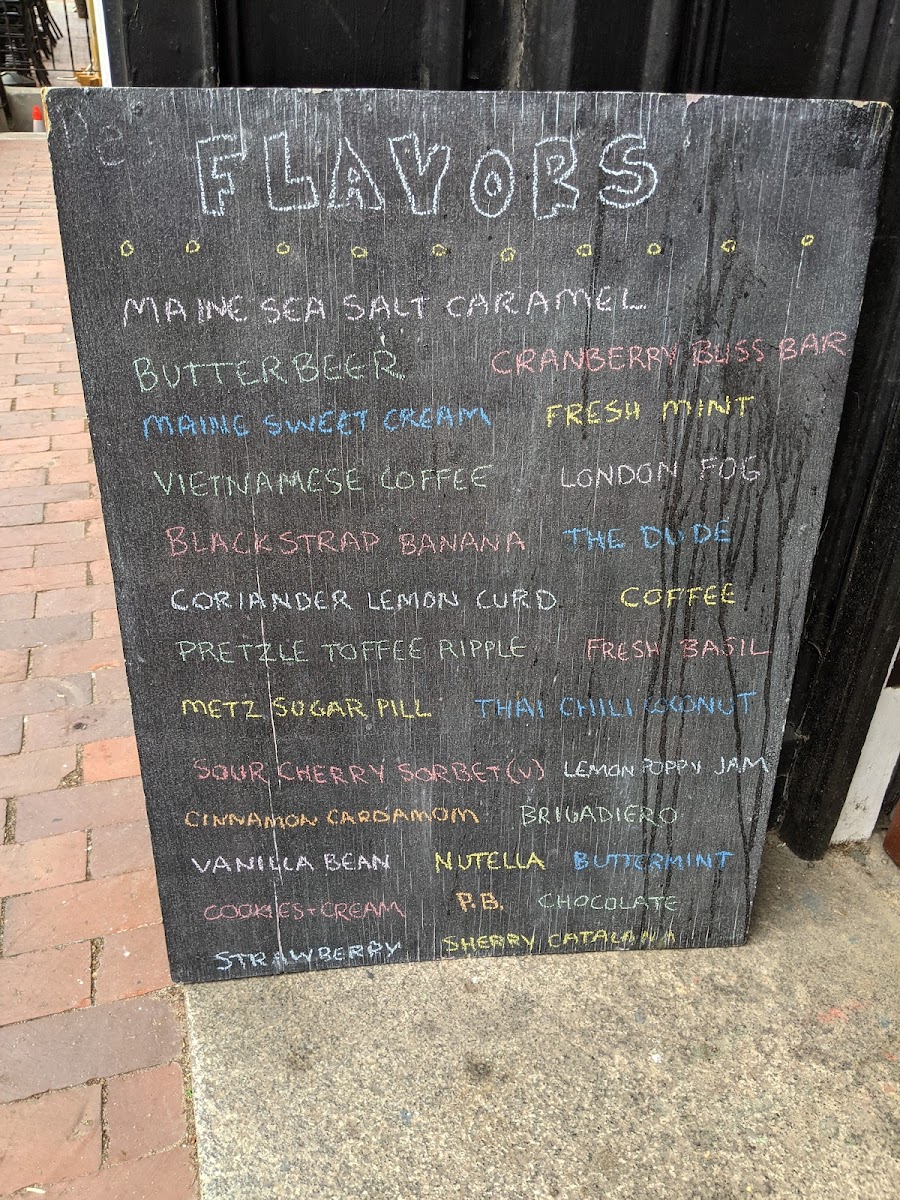 FLAVORS
MAINE SEA SALT CARAMEL
BUTTERBEER CRANBERRY BLISS BAR
MAINE SWEET CREAM FRESH MINT
VIETNAMESE COFFEE LONDON FOG
BLACKSTRAP BANANA THE DUDE
CORIANDER LEMON CURD COFFEE
PRETZLE TOFFEE RIPPLE FRESH BASIL
METZ SUGAR PILL THAI CHILI COCONUT
SOUR CHERRY SORBET(V) LEMON POPPY JAM
CINNAMON CARDAMOM BRIGADIERO
VANILLA BEAN NUTELLA BUTTERMINT
COOKIES+CREAM P.B. CHOCOLATE
STRAWBERRY SHERRY CATALANA